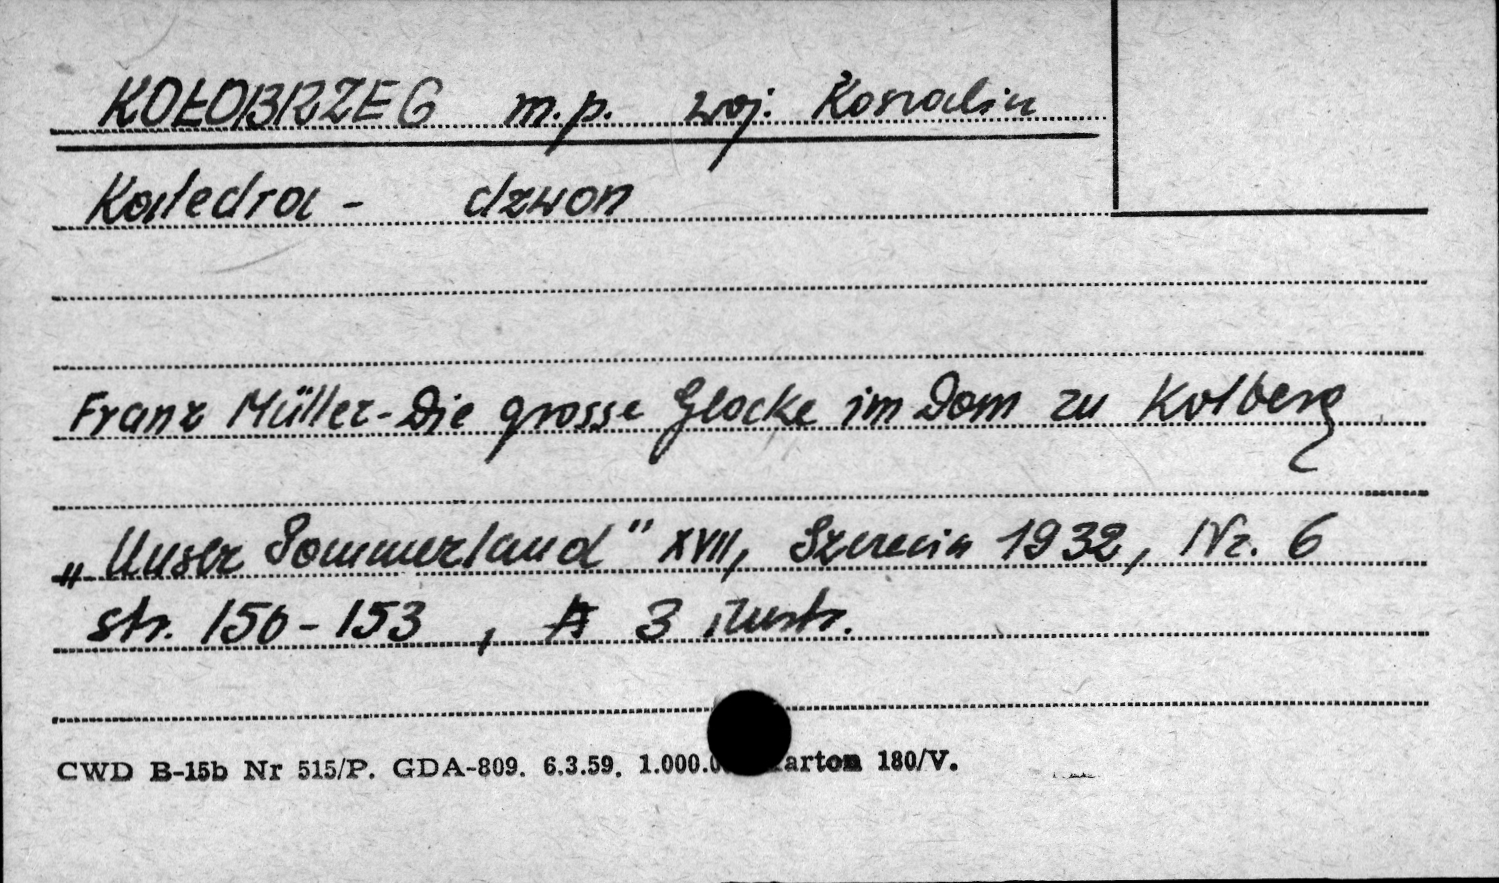 KOŁOBRZEG m.p. woj. Koszalin
Katedra - dzwon
Franz Müller - Die grosse Glocke im Dom zu Kolberg
„Unser Pommerland" XVII, Szczecin 1932, Nr. 6
str. 150-153, 3 ilustr.
CWD B-15b Nr 515/P. GDA-809. 6.3.59. 1.000.0 arton 180/V.